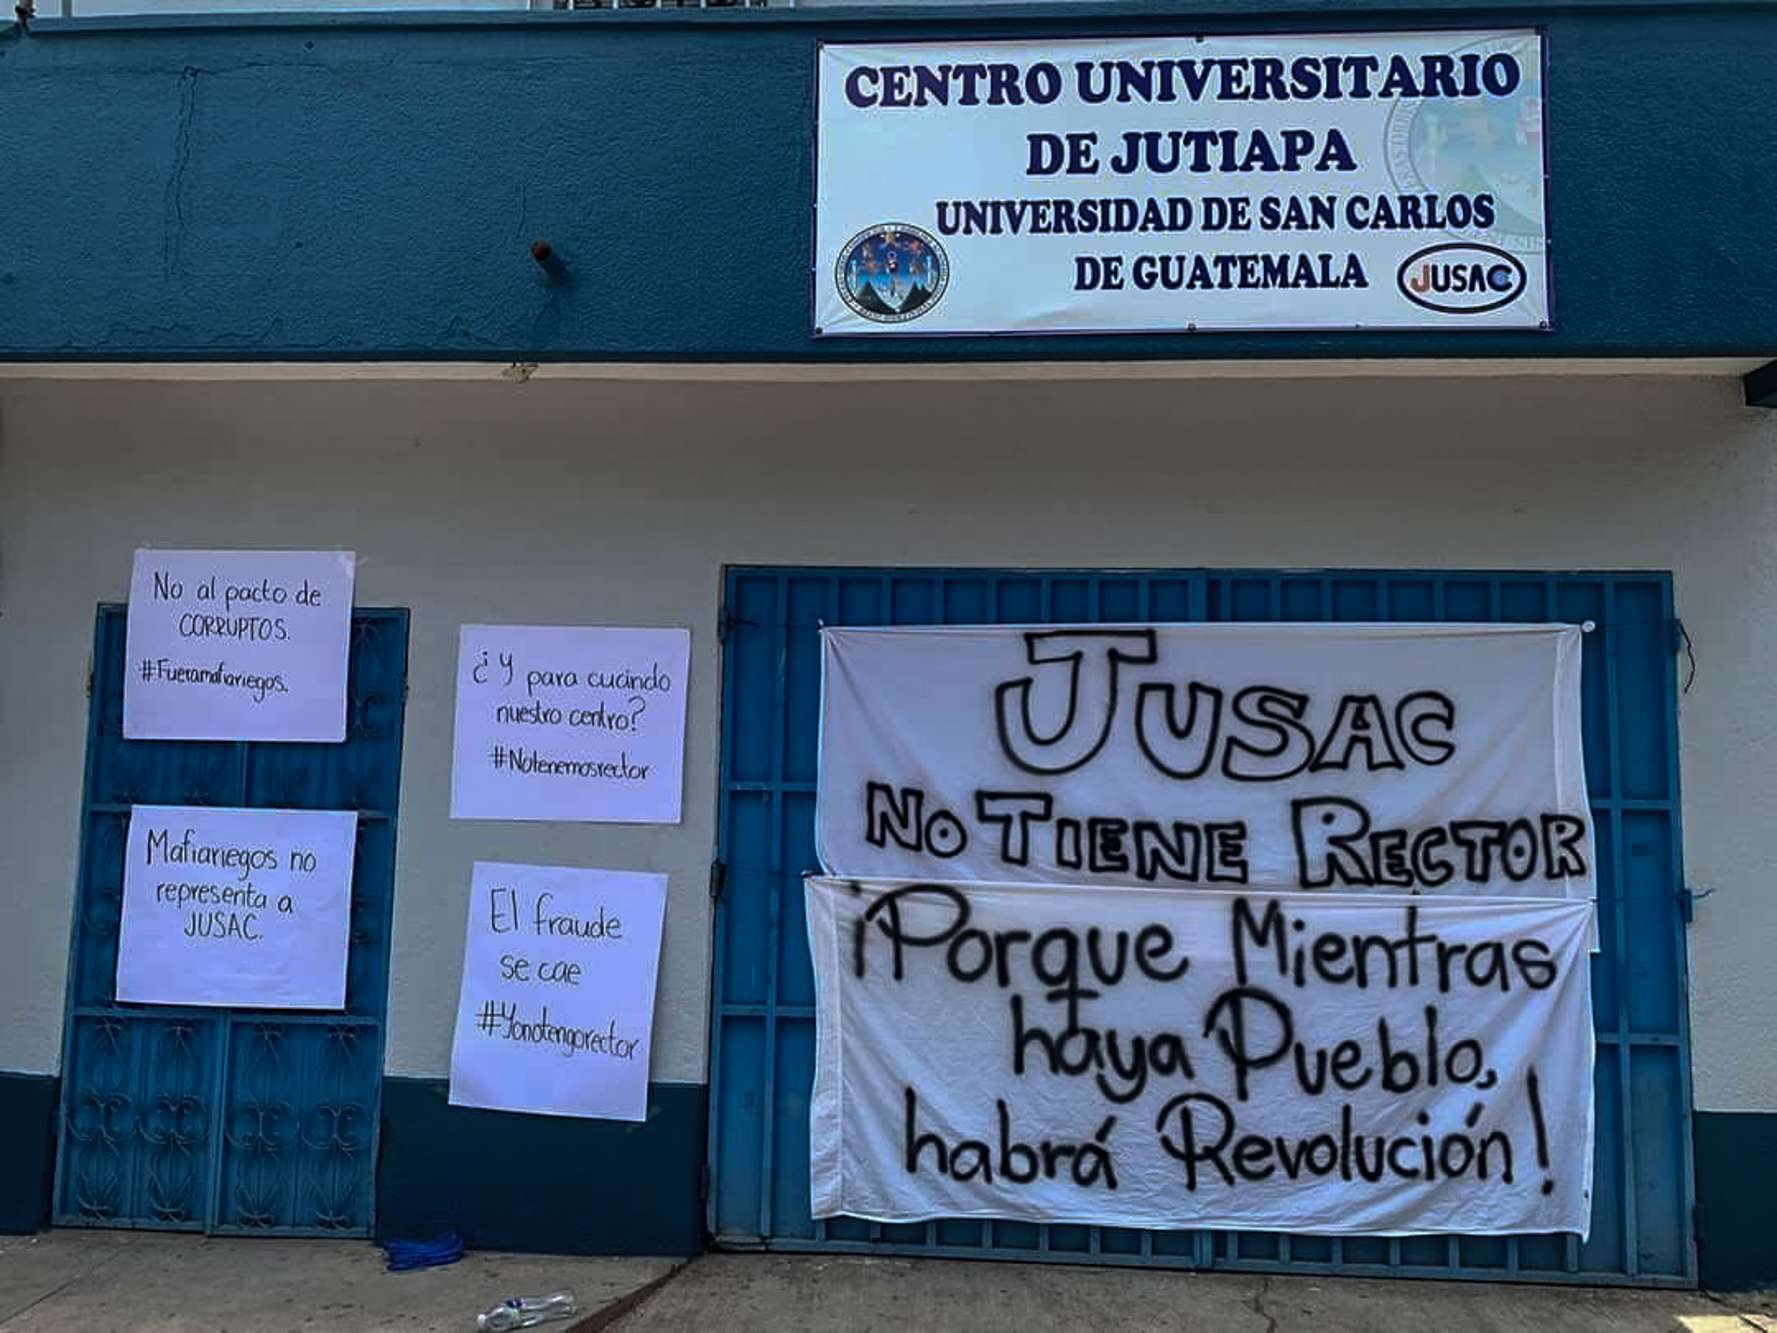 CENTRO UNIVERSITARIO
DE JUTIAPA
UNIVERSIDAD DE SAN CARLOS
DE GUATEMALA
JUSAC
No al pacto de
CORRUPTOS.
#Fueramafiariegos.
¿Y para cuándo
nuestro centro?
#Notenemosrector
Mafiariegos no
representa a
JUSAC.
El fraude
se cae
#Yonotengorector
JUSAC
NO TIENE RECTOR
¡Porque Mientras
haya Pueblo,
habrá Revolución!